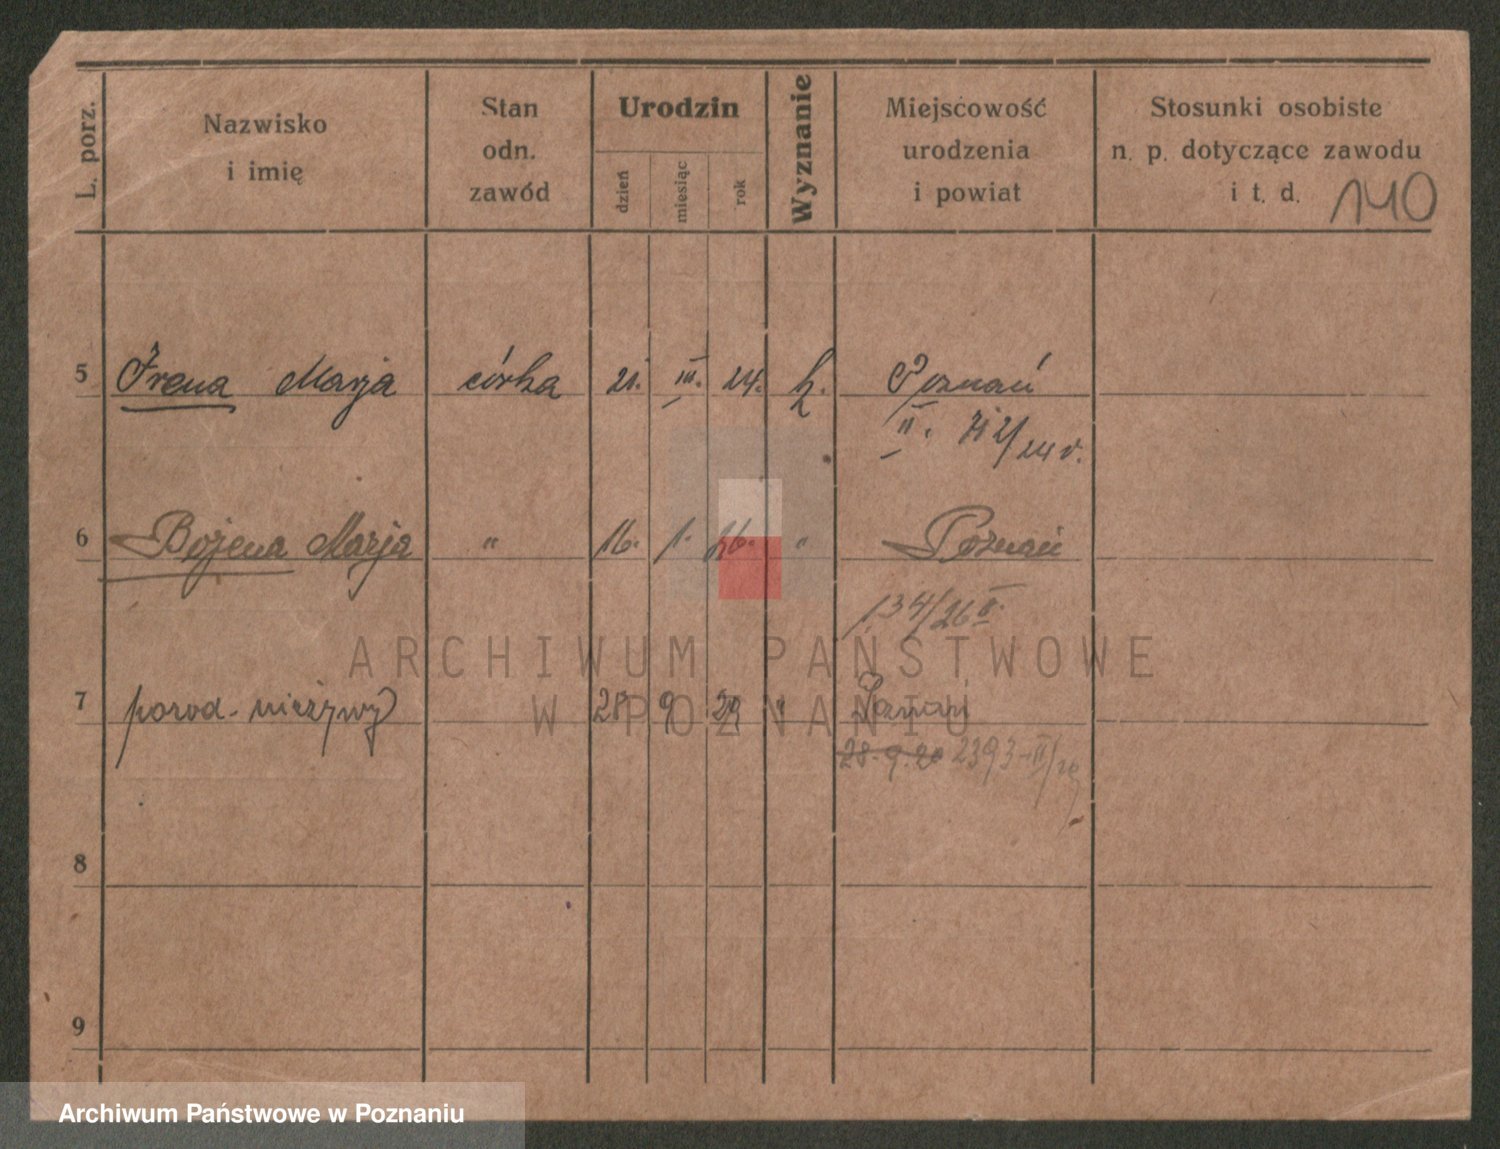 L. porz. Nazwisko i imię Stan odn. zawód Urodzin dzień miesiąc rok Wyznanie Miejscowość urodzenia i powiat Stosunki osobiste n. p. dotyczące zawodu i t. d. 140
5 Irena Marja córka 21. III. 24. k. Poznań
II.
6 Bożena Marja " 16. 1. 26. " Poznań
134/26 II.
7 porod. nieżywy 9 29 " Poznań
28. 9. 2393-II/29
8
9
ARCHIWUM PAŃSTWOWE
W POZNANIU
Archiwum Państwowe w Poznaniu